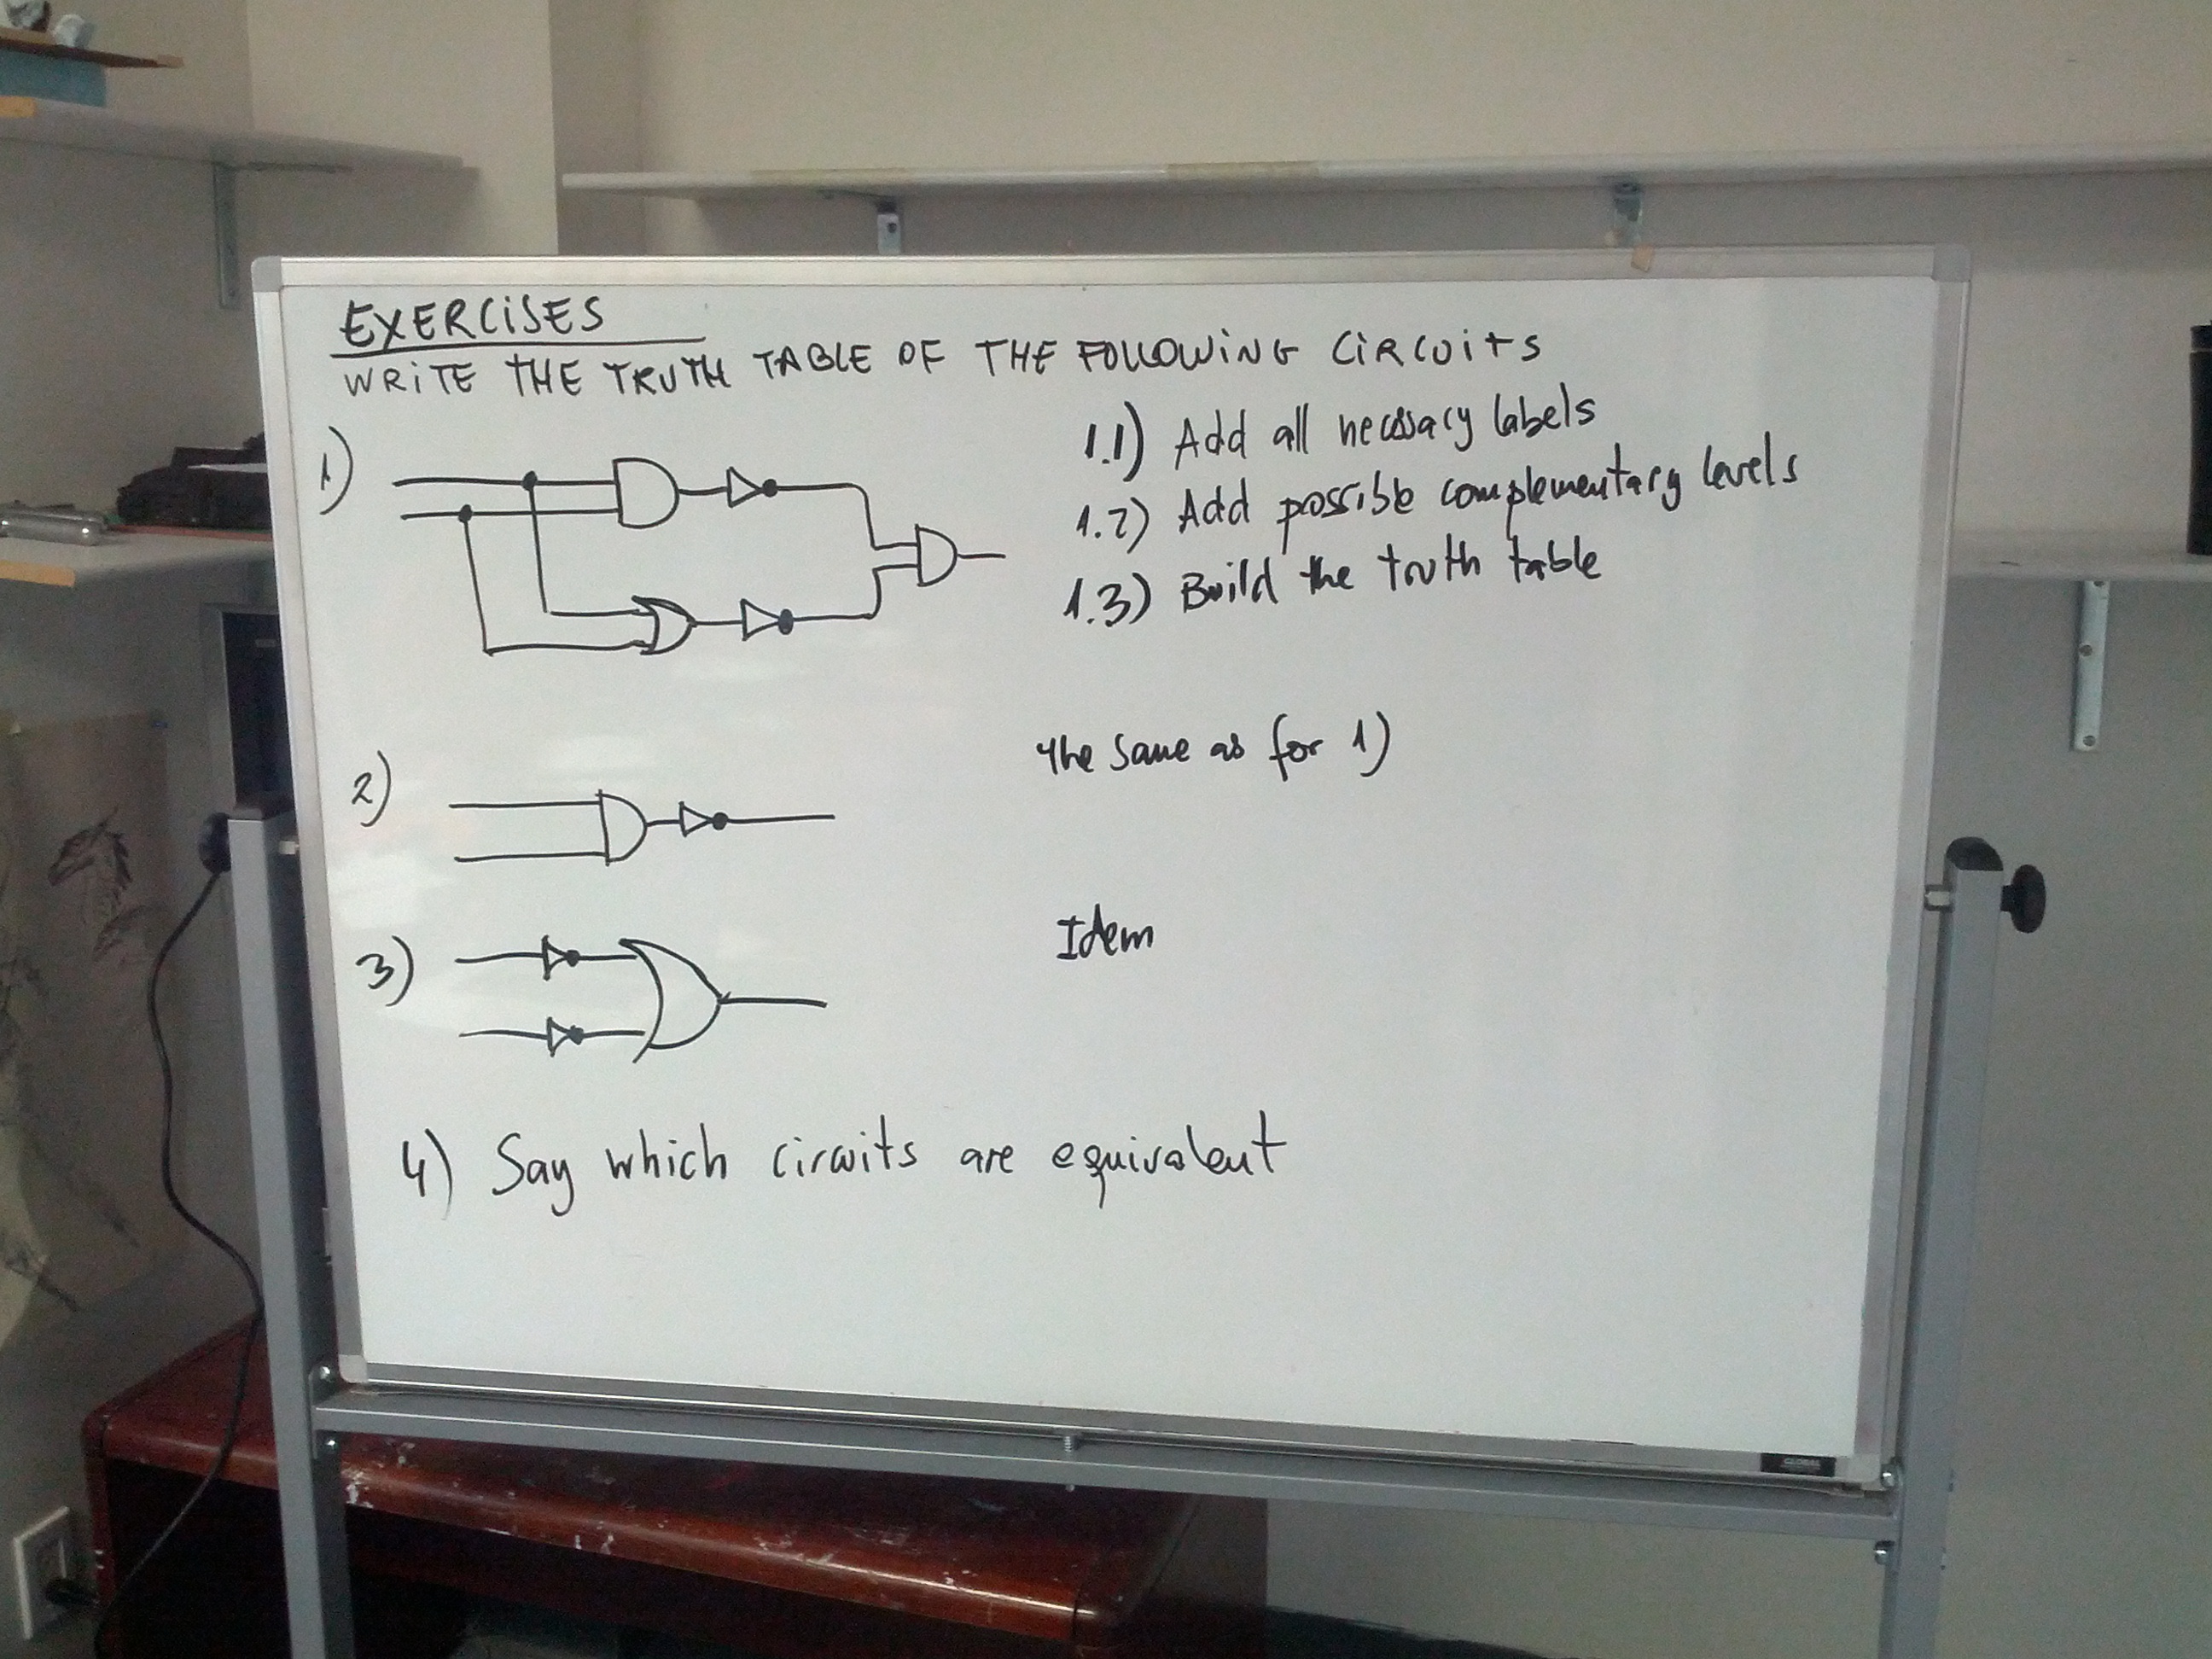 EXERCISES
WRITE THE TRUTH TABLE OF THE FOLLOWING CIRCUITS
1)
1.1) Add all necessary labels
1.2) Add possible complementary levels
1.3) Build the truth table
2)
The same as for 1)
3)
Idem
4) Say which circuits are equivalent
GLOBAL